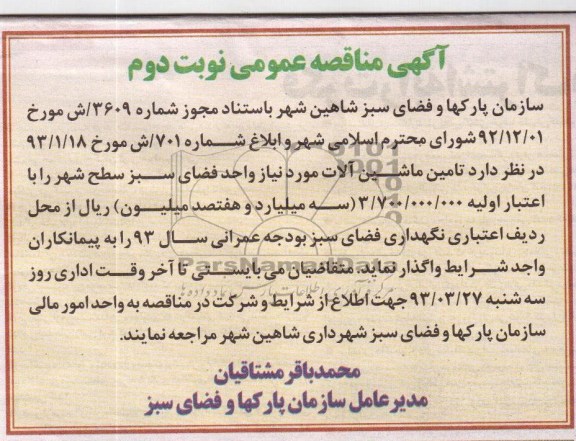 آگهی مناقصه عمومی نوبت دوم
سازمان پارکها و فضای سبز شاهین شهر باستناد مجوز شماره ۳۶۰۹/ش مورخ
۹۲/۱۲/۰۱ شورای محترم اسلامی شهر و ابلاغ شماره ۷۰۱/ش مورخ ۹۳/۱/۱۸
در نظر دارد تامین ماشین آلات مورد نیاز واحد فضای سبز سطح شهر را با
اعتبار اولیه ۳/۷۰۰/۰۰۰/۰۰۰ (سه میلیارد و هفتصد میلیون) ریال از محل
ردیف اعتباری نگهداری فضای سبز بودجه عمرانی سال ۹۳ را به پیمانکاران
واجد شرایط واگذار نماید. متقاضیان می بایستی تا آخر وقت اداری روز
سه شنبه ۹۳/۰۳/۲۷ جهت اطلاع از شرایط و شرکت در مناقصه به واحد امور مالی
سازمان پارکها و فضای سبز شهرداری شاهین شهر مراجعه نمایند.
محمدباقر مشتاقیان
مدیرعامل سازمان پارکها و فضای سبز
ParsNamadData